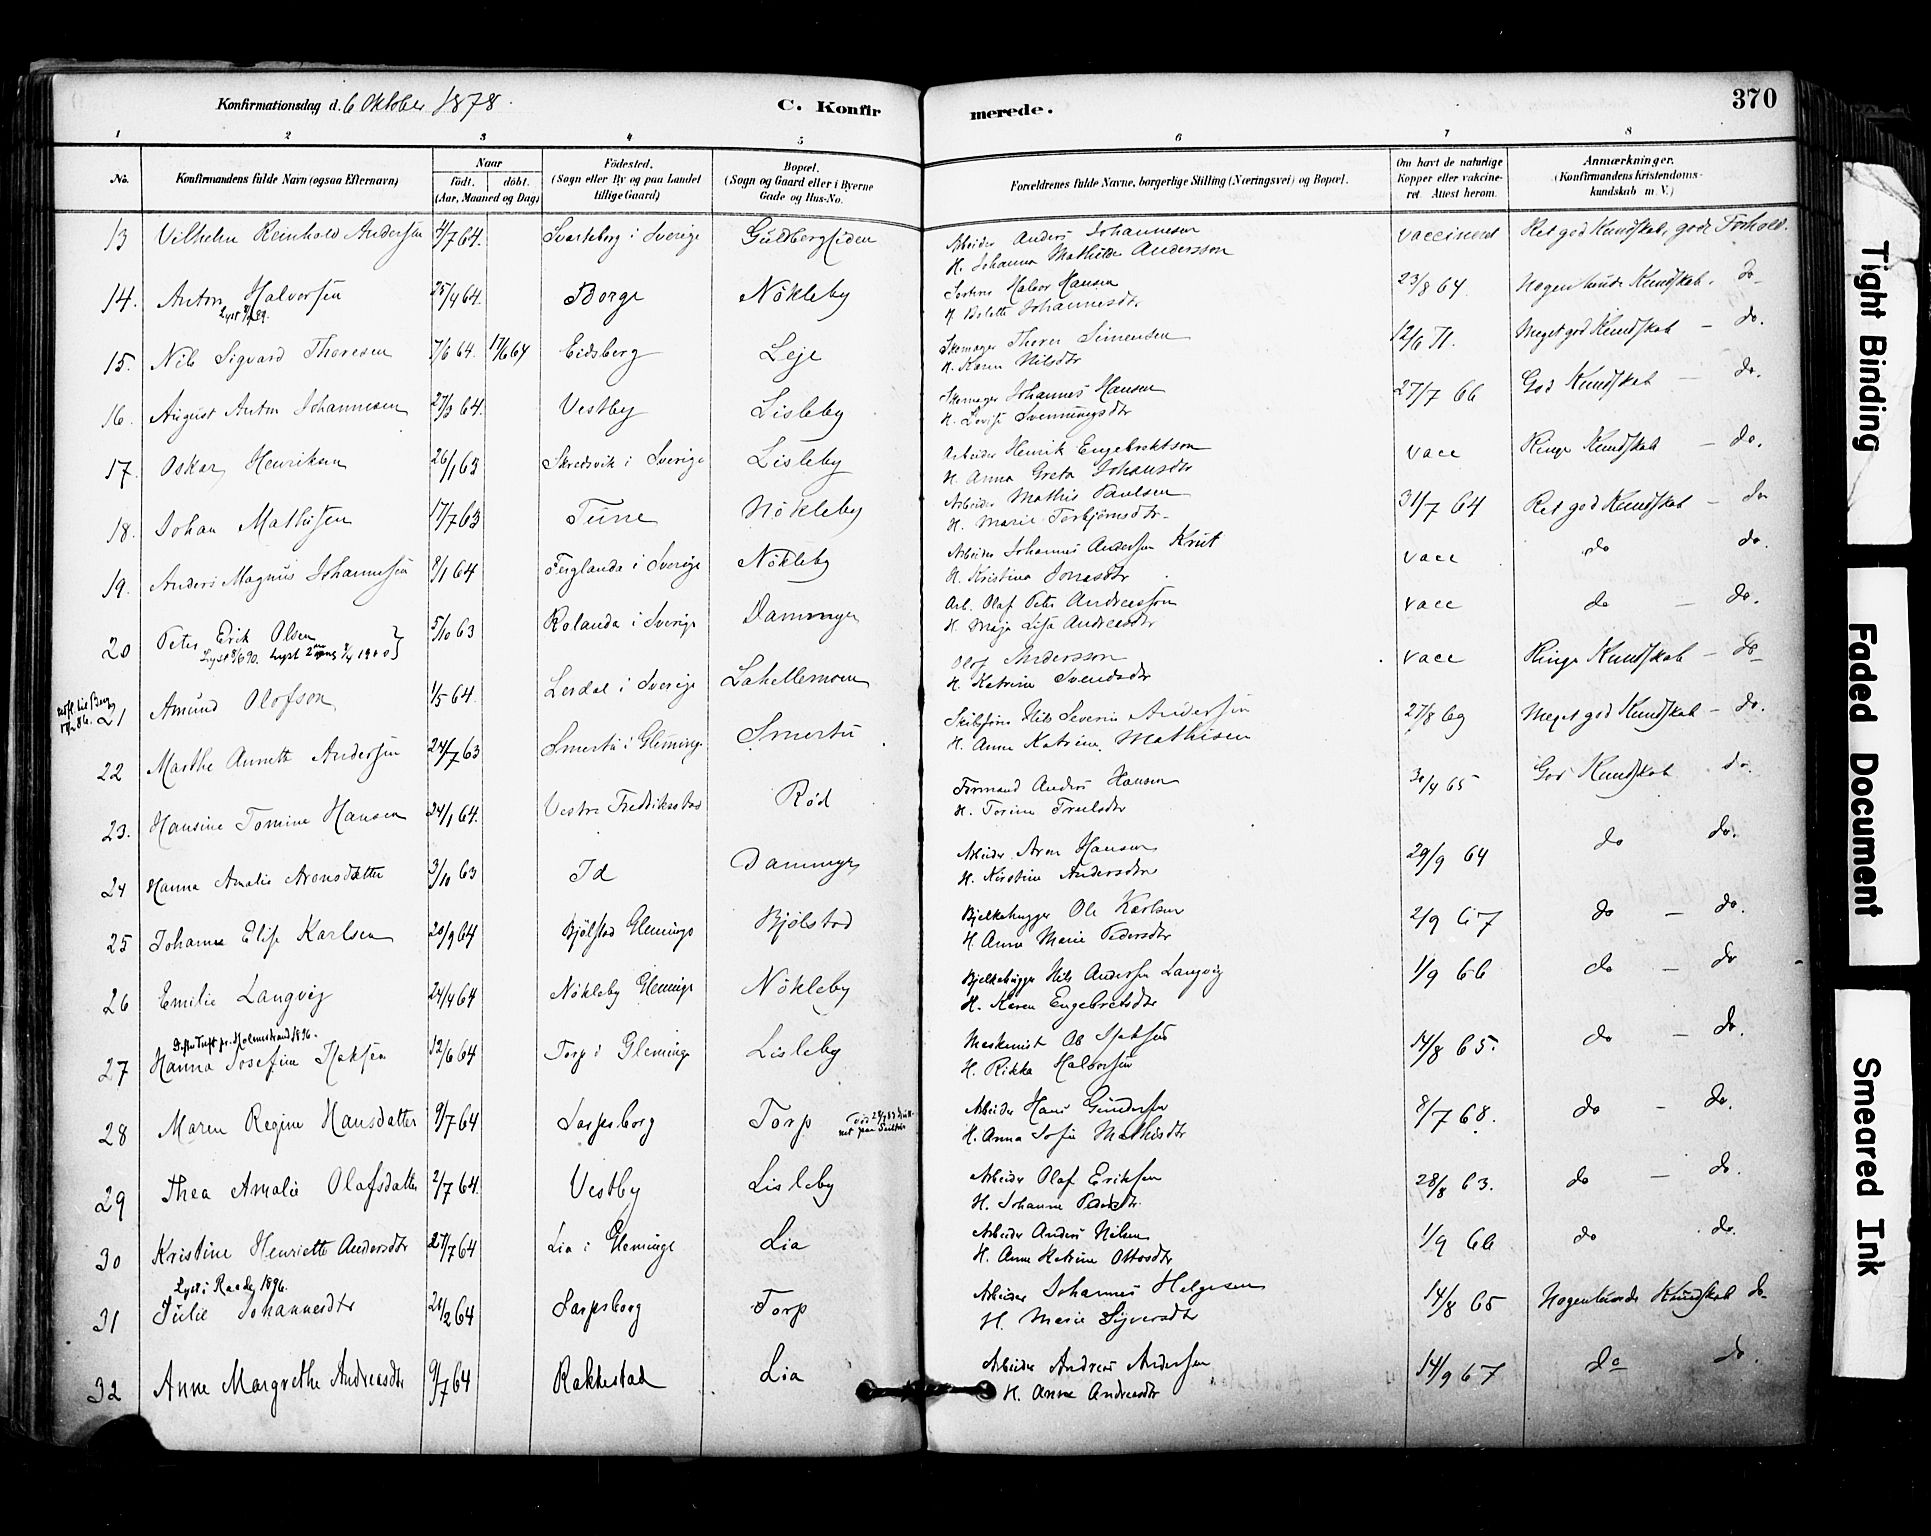 Konfirmationsdag d. 6 Oktober 1878.
C. Konfirmerede.
370
1 2 3 4 5 6 7 8
No. Konfirmandens fulde Navn (ogsaa Efternavn) Naar født. døbt. (Aar, Maaned og Dag) Fødested. (Sogn eller By og paa Landet tillige Gaard) Bopæl. (Sogn og Gaard eller i Byerne Gade og Hus-No. Forældrenes fulde Navne, borgerlige Stilling (Næringsvei) og Bopæl. Om havt de naturlige Kopper eller vakcineret. Attest herom. Anmærkninger. (Konfirmandens Kristendomskundskab m. V.)
13 Vilhelm Reinhold Andersen 4/7 64. i Sverige Arbeider Anders Johannesen vaccineret Ret god Kundskab, gode Forhold.
H. Johanna Mathilde Andersson
14. Anton Halvorsen 25/4 64. Borge Nökleby Halvor Hansen 23/8 64. Nogenlunde Kundskab. do
Lyst 89. H. Johannesdtr
15. Nils Sigvard Thoresen 7/6 64. 17/6 64 Eidsberg Leje Skomager Thorer Simensen 12/6 71. Meget god Kundskab – do.
H. Karen Nilsdtr
16. August Anton Johannesen 27/3 64. Vestby Lisleby Skomager Johannes Hansen 27/7 66 God Kundskab – do.
H. Lovise Svenningsdtr
17. Oskar Henriksen 26/1 63 Skredsvik i Sverige Lisleby Arbeider Henrik Engebrektson vacc Ringe Kundskab – do.
H. Anna Greta Johansdtr
18. Johan Mathisen 17/7 63 Tune Nökleby Arbeider Mathis Paulsen 31/7 64 Ret god Kundskab – do
H. Marie Torbjörnsdtr.
19. Anders Magnus Johannesen 8/1 64 Ferglanda i Sverige Nökleby Arbeider Johannes Andersen Krut vacc do do.
H. Kristina Jonasdtr
20 Peter Erik Olsen 5/10 63 Rolanda i Sverige Dammyr Arb. Olaf Peter Andreassen vacc do – do.
Lyst 8/6 90. Lyst 2den gang 1900 H. Maja Lisa Andreasdtr
21 Amund Olofson 1/5 64. Lerdal i Sverige Lahellemoen Olof Andersson vacc Ringe Kundskab – do
H. Katrine Svendsdtr
22 Marthe Annette Andersen 24/7 63 Smertu i Glemminge Smertu Nils Severin Andersen 27/8 69 Meget god Kundskab – do.
H. Anne Katrine Mathisen
23. Hansine Tomine Hansen 24/1 64. Vestre Fredrikstad Röd Formand Anders Hansen 30/4 65 God Kundskab do.
H. Torine Truelsdtr
24 Hanna Amalie Aronsdatter 3/10 63 Id Dammyr Arbeider Aron Hansen 29/9 64 do do.
H. Kirstine Andersdtr
25 Johanne Elise Karlsen 20/9 64 Bjölstad Glemminge Bjölstad Bjelkehugger Ole Karlsen 2/9 67 do – do.
H. Anne Marie Pedersdtr
26 Emilie Langvig 24/4 64 Nökleby Glemminge Nökleby Bjelkehugger Nils Andersen Langvig 1/9 66 do – do
H. Karen Engebretsdtr
Holmestrand 1896.
27 Hanna Josefine Isaksen 12/6 64 Torp i Glemminge Lisleby Maskinist Ole Isaksen 14/8 65. do – do.
H. Rikka Halvorsen
28 Maren Regine Hansdatter 9/7 64 Sarpsborg Torp Arbeider Hans Gundersen 8/7 68. do – do.
H. Anna Sofie Mathisdtr
29 Thea Amalie Olafsdatter 2/7 64. Vestby Lisleby Arbeider Olaf Eriksen 28/8 63. do – do.
H. Johanne Pedersdtr.
30 Kristine Henriette Andersdtr 27/7 64 Lia i Glemminge Lia Arbeider Anders Nilsen 1/9 66 do do.
H. Anne Katrine Ottosdtr
Lyst i Raade 1896.
31 Julie Johannesdtr 21/2 64 Sarpsborg Torp Arbeider Johannes Helgesen 14/8 65 Nogenlunde Kundskab do
H. Marie Syversdtr
32 Anne Margrethe Andreasdtr 9/7 64 Rakkestad Lia Arbeider Andreas Andersen 14/9 67 do do.
H. Anne Andreasdtr
Tight Binding
Faded Document
Smeared Ink